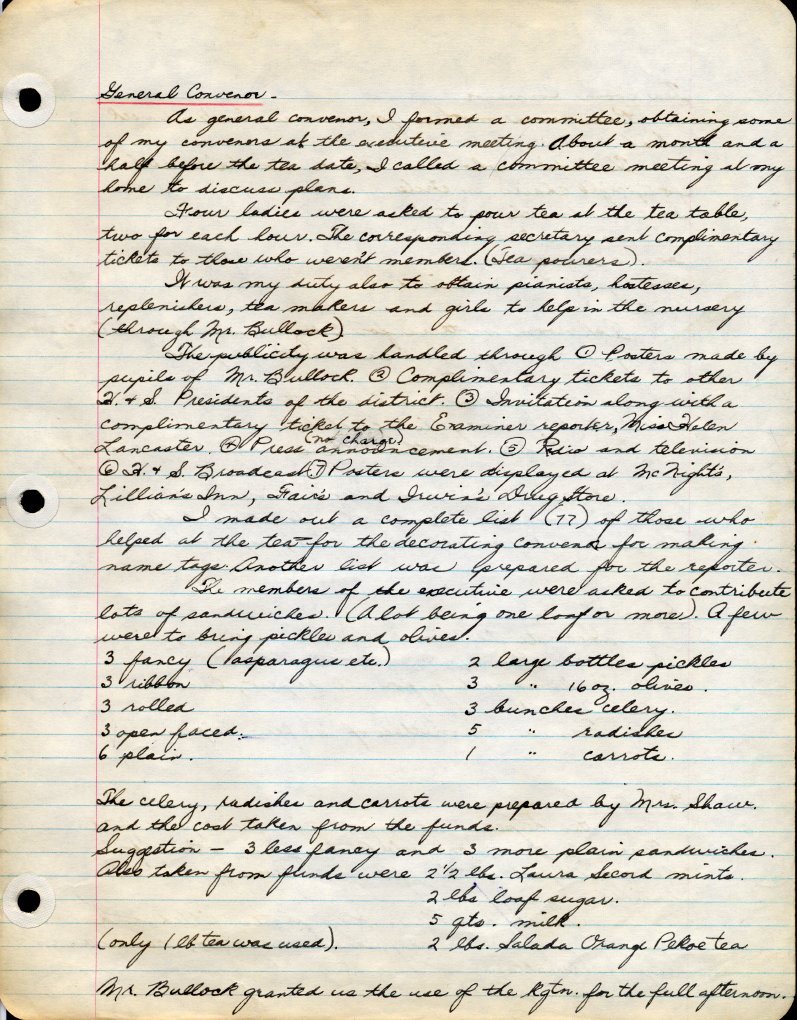 General Convenor -
As general convenor, I formed a committee, obtaining some
of my convenors at the executive meeting. About a month and a
half before the tea date, I called a committee meeting at my
home to discuss plans.
Four ladies were asked to pour tea at the tea table,
two for each hour. The corresponding secretary sent complimentary
tickets to those who weren't members. (Tea pourers).
It was my duty also to obtain pianists, hostesses,
replenishers, tea makers and girls to help in the nursery
(through Mr. Bullock)
The publicity was handled through ① Posters made by
pupils of Mr. Bullock. ② Complimentary tickets to other
H. & S. Presidents of the district. ③ Invitation along with a
complimentary ticket to the Examiner reporter, Miss Helen
Lancaster. ④ Press (no charge) announcement. ⑤ Radio and television
⑥ H. & S. Broadcast ⑦ Posters were displayed at McNight's,
Lillian's Inn, Fair's and Irwin's Drug Store.
I made out a complete list (77) of those who
helped at the tea - for the decorating convenor for making
name tags. Another list was prepared for the reporter.
The members of the executive were asked to contribute
lots of sandwiches. (A lot being one loaf or more). A few
were to bring pickles and olives.
3 fancy (asparagus etc.) 2 large bottles pickles
3 ribbon 3 " 16 oz. olives.
3 rolled 3 bunches celery.
3 open faced. 5 " radishes
6 plain. 1 " carrots.
The celery, radishes and carrots were prepared by Mrs. Shaw.
and the cost taken from the funds.
Suggestion - 3 less fancy and 3 more plain sandwiches.
Also taken from funds were 2 1/2 lbs. Laura Secord mints.
2 lbs loaf sugar.
5 qts. milk.
(only 1 lb tea was used). 2 lbs. Salada Orange Pekoe tea
Mr. Bullock granted us the use of the kgtn. for the full afternoon.